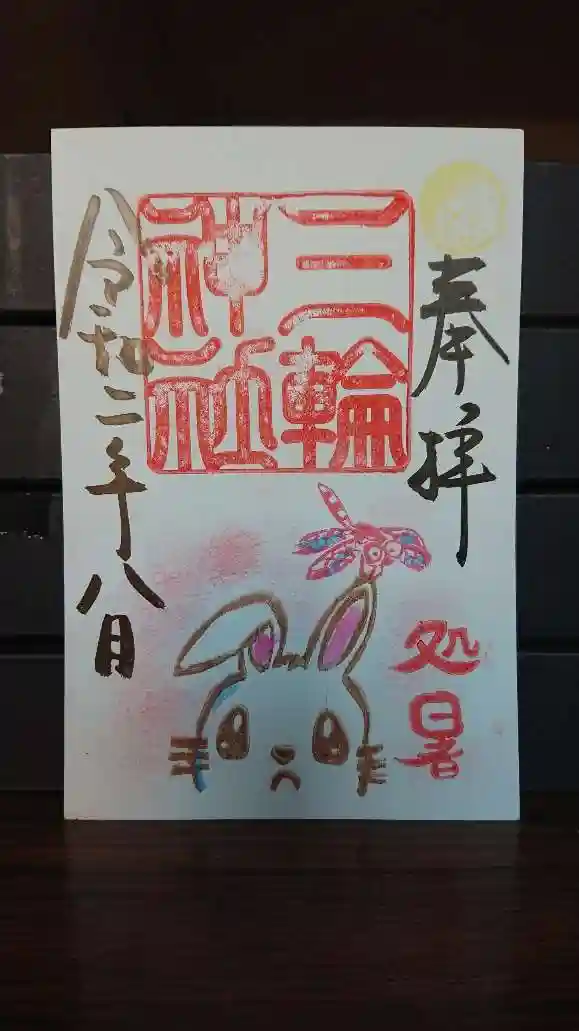 奉拝
処暑
三輪
神社
令和二年八月